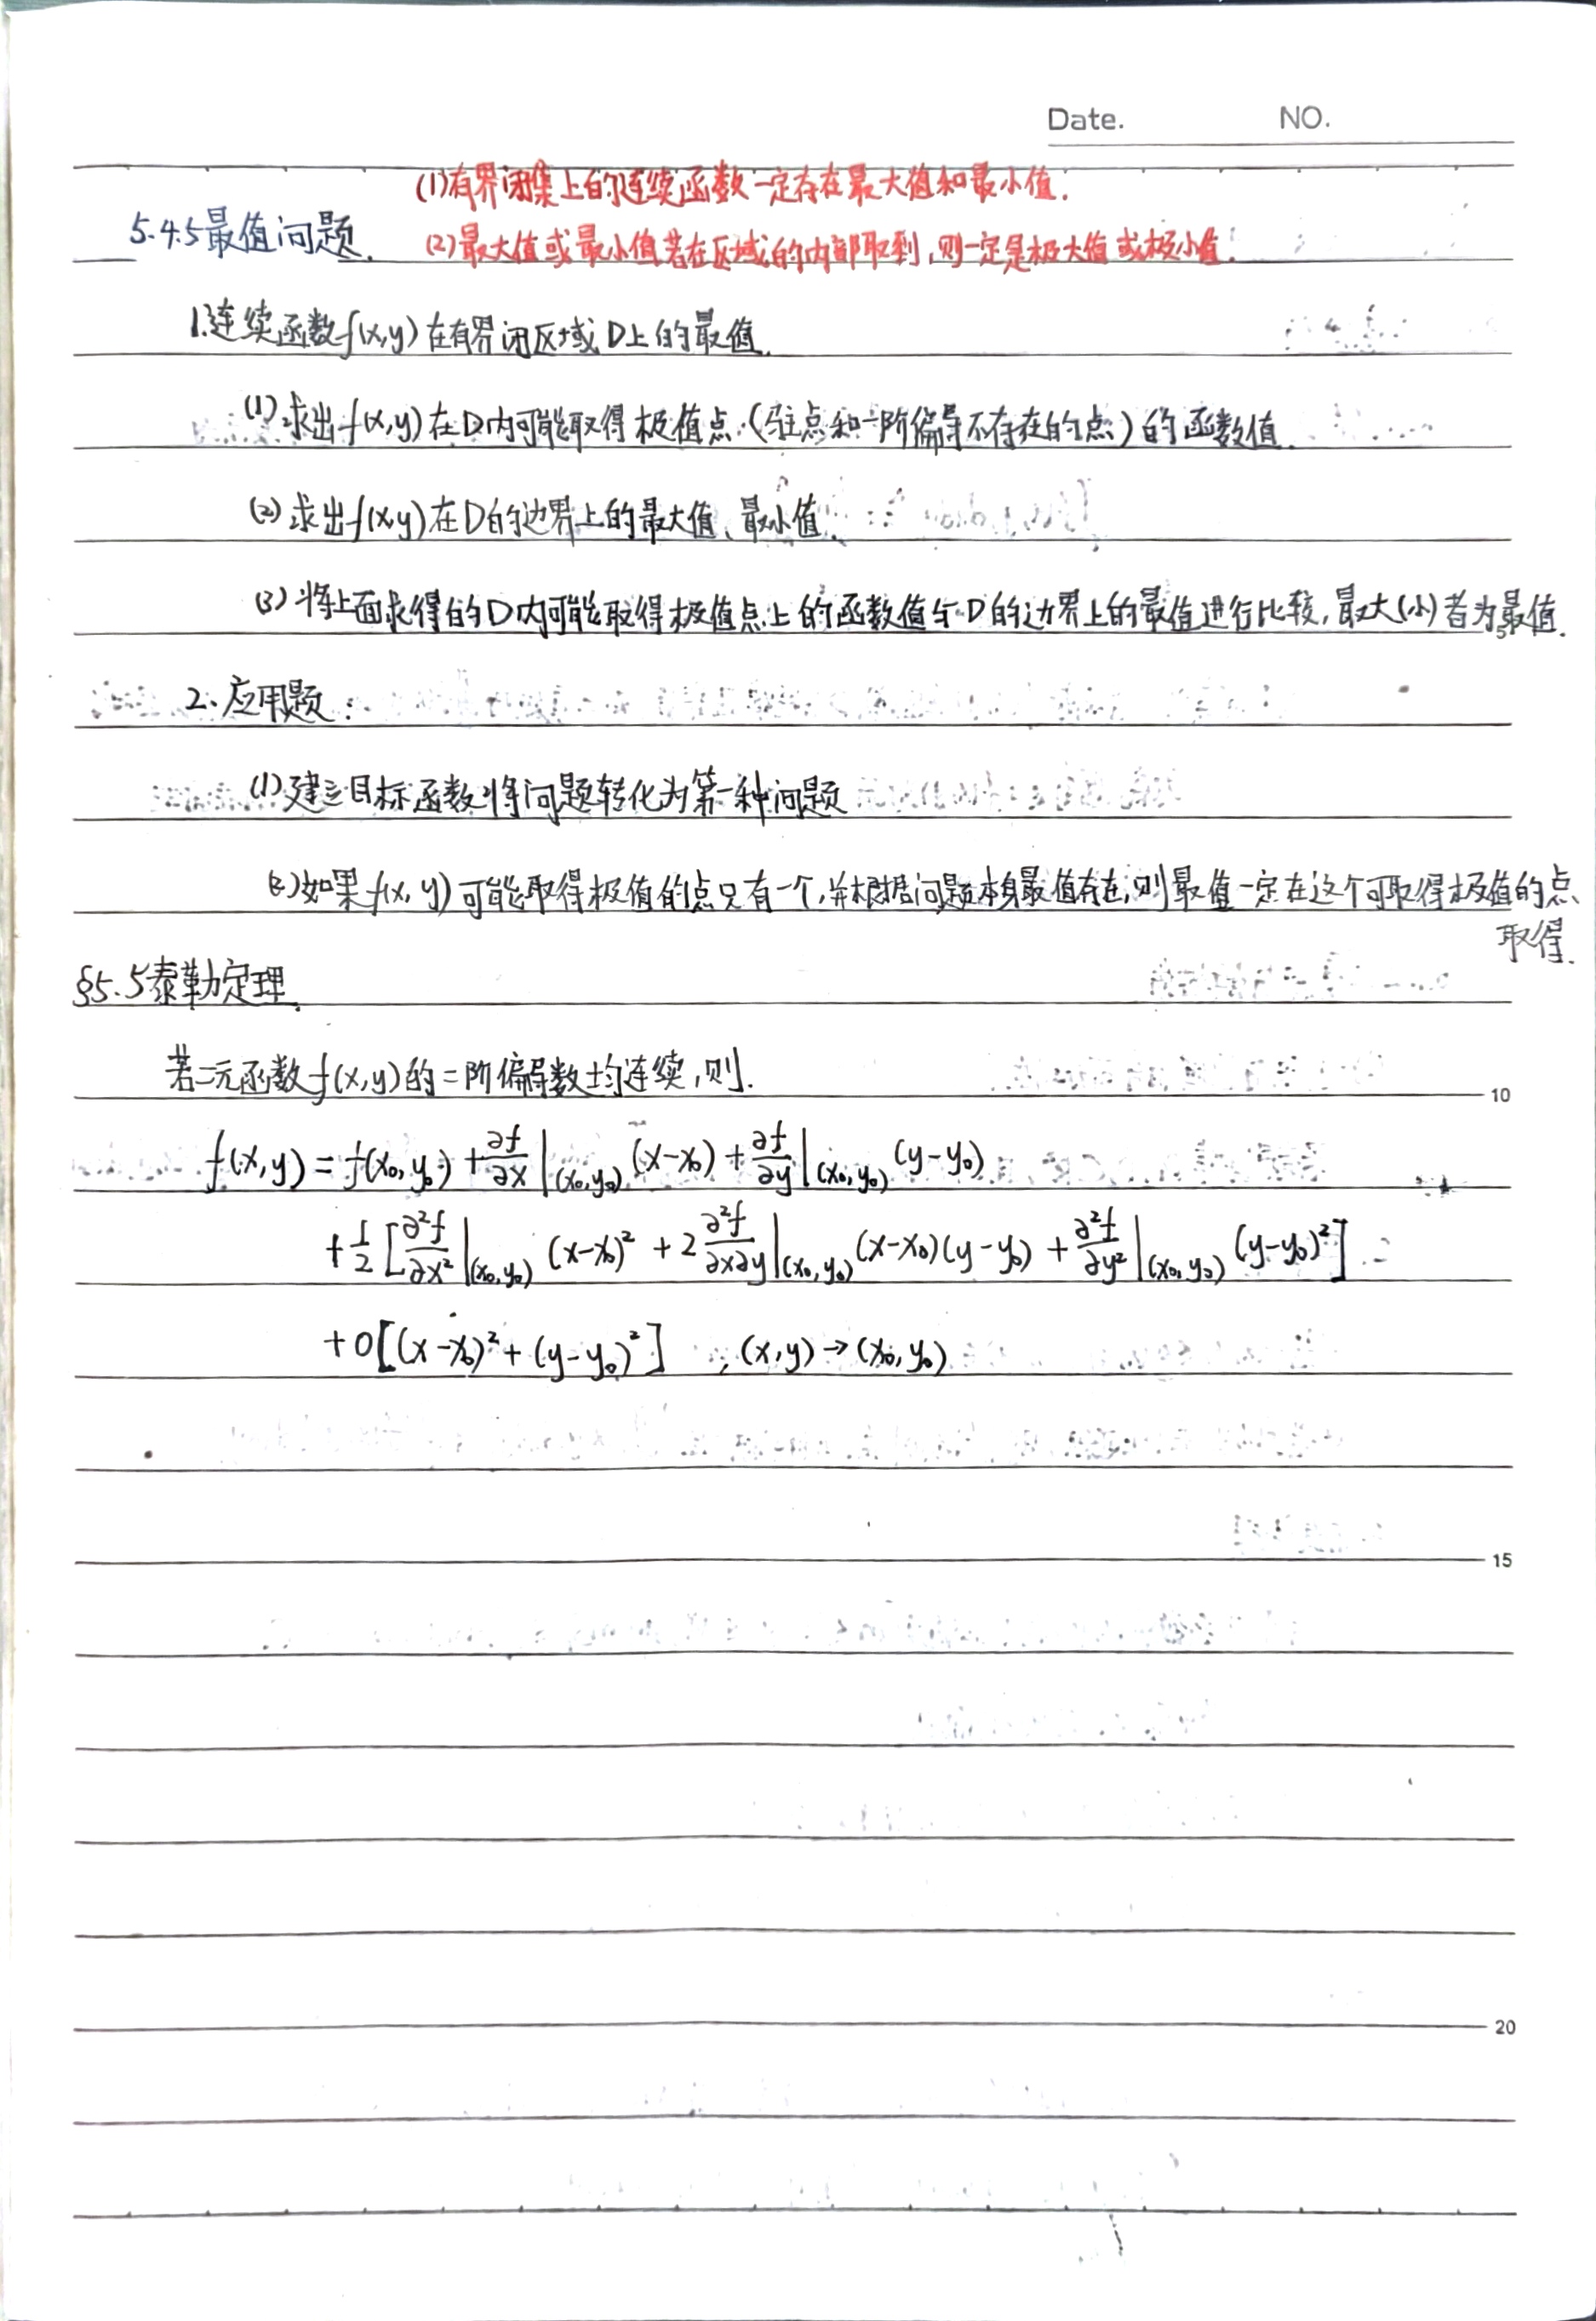 Date. NO.
(1)有界闭集上的连续函数一定存在最大值和最小值.
5.4.5最值问题.
(2)最大值或最小值若在区域的内部取到,则一定是极大值或极小值.
1.连续函数f(x,y)在有界闭区域D上的最值.
(1)求出f(x,y)在D内可能取得极值点(驻点和一阶偏导不存在的点)的函数值.
(2)求出f(x,y)在D的边界上的最大值、最小值.
(3)将上面求得的D内可能取得极值点上的函数值与D的边界上的最值进行比较,最大(小)者为最值.
5
2、应用题:
(1)建立目标函数将问题转化为第一种问题
(2)如果f(x,y)可能取得极值的点只有一个,并根据问题本身最值存在,则最值一定在这个可取得极值的点
取得.
§5.5泰勒定理.
若二元函数f(x,y)的二阶偏导数均连续,则.
10
f(x,y)=f(x₀,y₀)+∂f/∂x|(x₀,y₀)(x-x₀)+∂f/∂y|(x₀,y₀)(y-y₀)
+1/2[∂²f/∂x²|(x₀,y₀)(x-x₀)²+2∂²f/∂x∂y|(x₀,y₀)(x-x₀)(y-y₀)+∂²f/∂y²|(x₀,y₀)(y-y₀)²]
+o[(x-x₀)²+(y-y₀)²] ,(x,y)→(x₀,y₀)
15
20